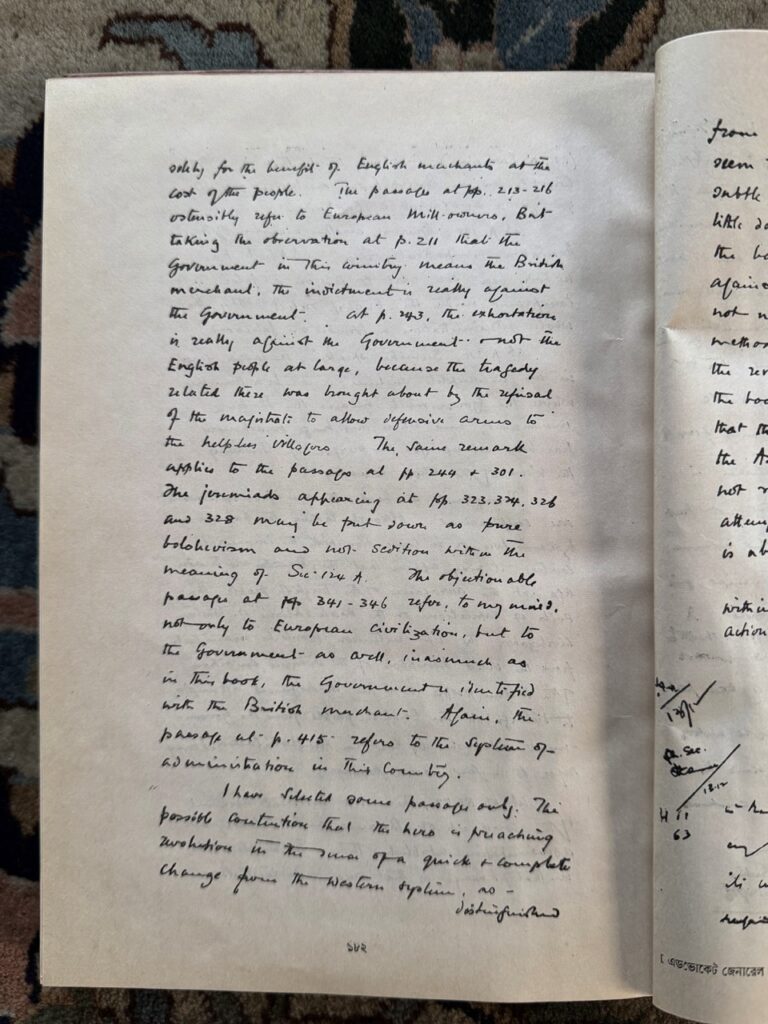 solely for the benefit of English merchants at the
cost of the people. The passages at pp. 213-216
ostensibly refer to European Mill-owners, But
taking the observation at p. 211 that the
Government in this country means the British
merchant, the indictment is really against
the Government. At p. 243, the exhortation
is really against the Government & not the
English people at large, because the tragedy
related there was brought about by the refusal
of the magistrate to allow defensive arms to
the helpless villagers The same remark
applies to the passage at pp 244 & 301.
The jeremiads appearing at pp. 323, 324, 326
and 328 may be put down as pure
bolshevism and not sedition within the
meaning of Sec 124 A. The objectionable
passage at pp 341-346 refers, to my mind,
not only to European civilization, but to
the Government as well, inasmuch as
in this book, the Government is identified
with the British merchant. Again, the
passage at p. 415 refers to the system of
administration in this Country.
I have selected some passage only. The
possible contention that the hero is preaching
revolution in the sense of a quick & complete
change from the Western system, as -
distinguished
১৮২
from
seem
subtle
little
the
against
not
method
the
the
that
the
not
is
within
action
H 11
63
[ এডভোকেট জেনারেল